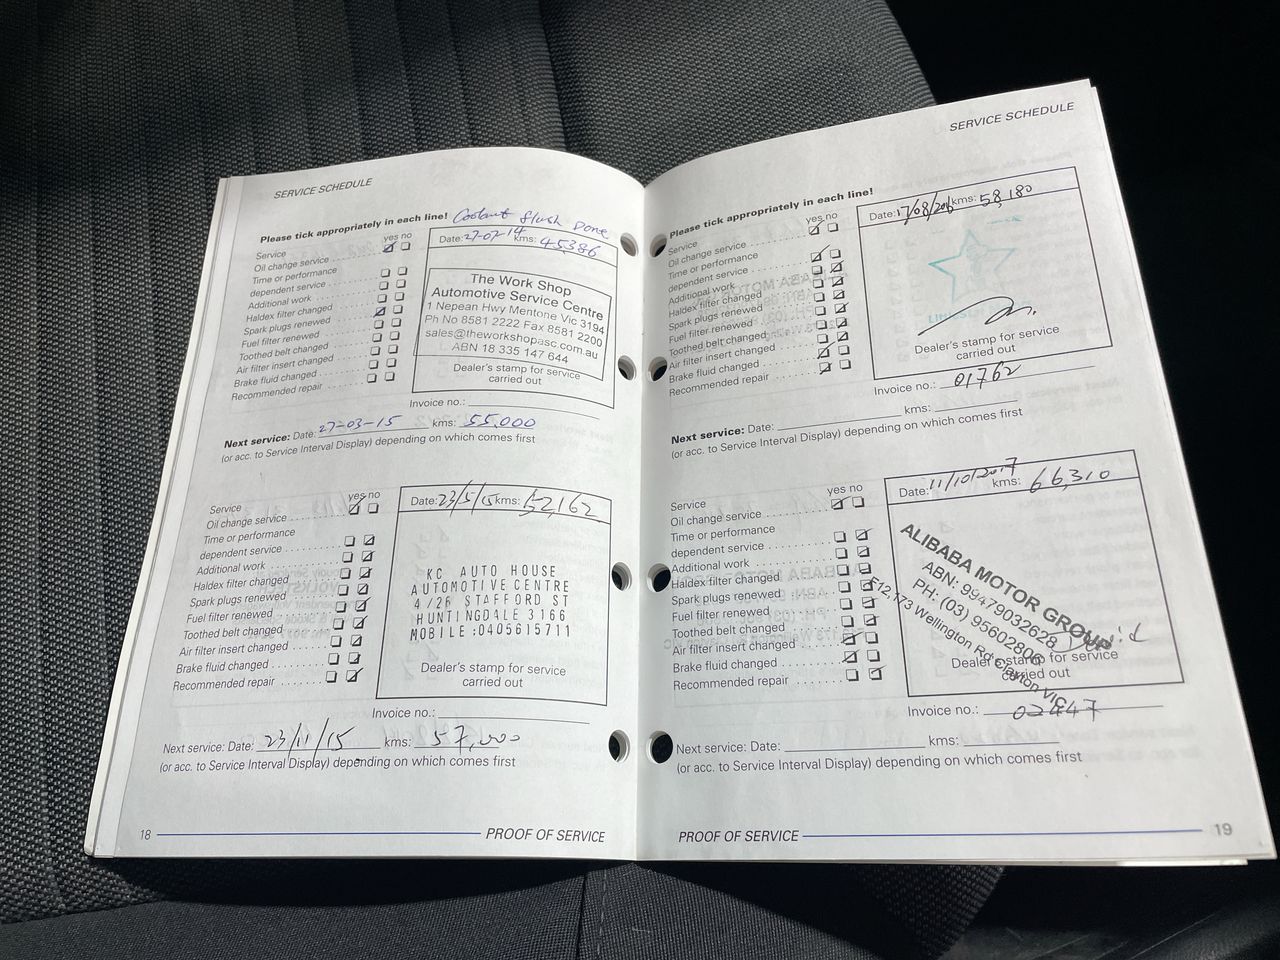 SERVICE SCHEDULE
Please tick appropriately in each line! Coolant flush Done
yes no
Service
Oil change service
Time or performance
dependent service
Additional work
Haldex filter changed
Spark plugs renewed
Fuel filter renewed
Toothed belt changed
Air filter insert changed
Brake fluid changed
Recommended repair
Date: 27-07-14 kms: 45386
The Work Shop
Automotive Service Centre
1 Nepean Hwy Mentone Vic 3194
Ph No 8581 2222 Fax 8581 2200
sales@theworkshopasc.com.au
ABN 18 335 147 644
Dealer's stamp for service
carried out
Invoice no.:
Next service: Date: 27-03-15 kms: 55,000
(or acc. to Service Interval Display) depending on which comes first
yes no
Service
Oil change service
Time or performance
dependent service
Additional work
Haldex filter changed
Spark plugs renewed
Fuel filter renewed
Toothed belt changed
Air filter insert changed
Brake fluid changed
Recommended repair
Date: 23/5/15 kms: 52,162
KC AUTO HOUSE
AUTOMOTIVE CENTRE
4/26 STAFFORD ST
HUNTINGDALE 3166
MOBILE:0405615711
Dealer's stamp for service
carried out
Invoice no.:
Next service: Date: 23/11/15 kms: 57,000
(or acc. to Service Interval Display) depending on which comes first
18 PROOF OF SERVICE
SERVICE SCHEDULE
Please tick appropriately in each line!
yes no
Service
Oil change service
Time or performance
dependent service
Additional work
Haldex filter changed
Spark plugs renewed
Fuel filter renewed
Toothed belt changed
Air filter insert changed
Brake fluid changed
Recommended repair
Date: 17/08/2016 kms: 58,180
Dealer's stamp for service
carried out
Invoice no.: 01762
Next service: Date: kms:
(or acc. to Service Interval Display) depending on which comes first
yes no
Service
Oil change service
Time or performance
dependent service
Additional work
Haldex filter changed
Spark plugs renewed
Fuel filter renewed
Toothed belt changed
Air filter insert changed
Brake fluid changed
Recommended repair
Date: 11/10/2017 kms: 66,310
ALIBABA MOTOR GROUP
ABN: 99479032628
PH: (03) 95602806
F12,173 Wellington Rd, Clayton VIC
Dealer's stamp for service
carried out
Invoice no.: 02447
Next service: Date: kms:
(or acc. to Service Interval Display) depending on which comes first
PROOF OF SERVICE 19